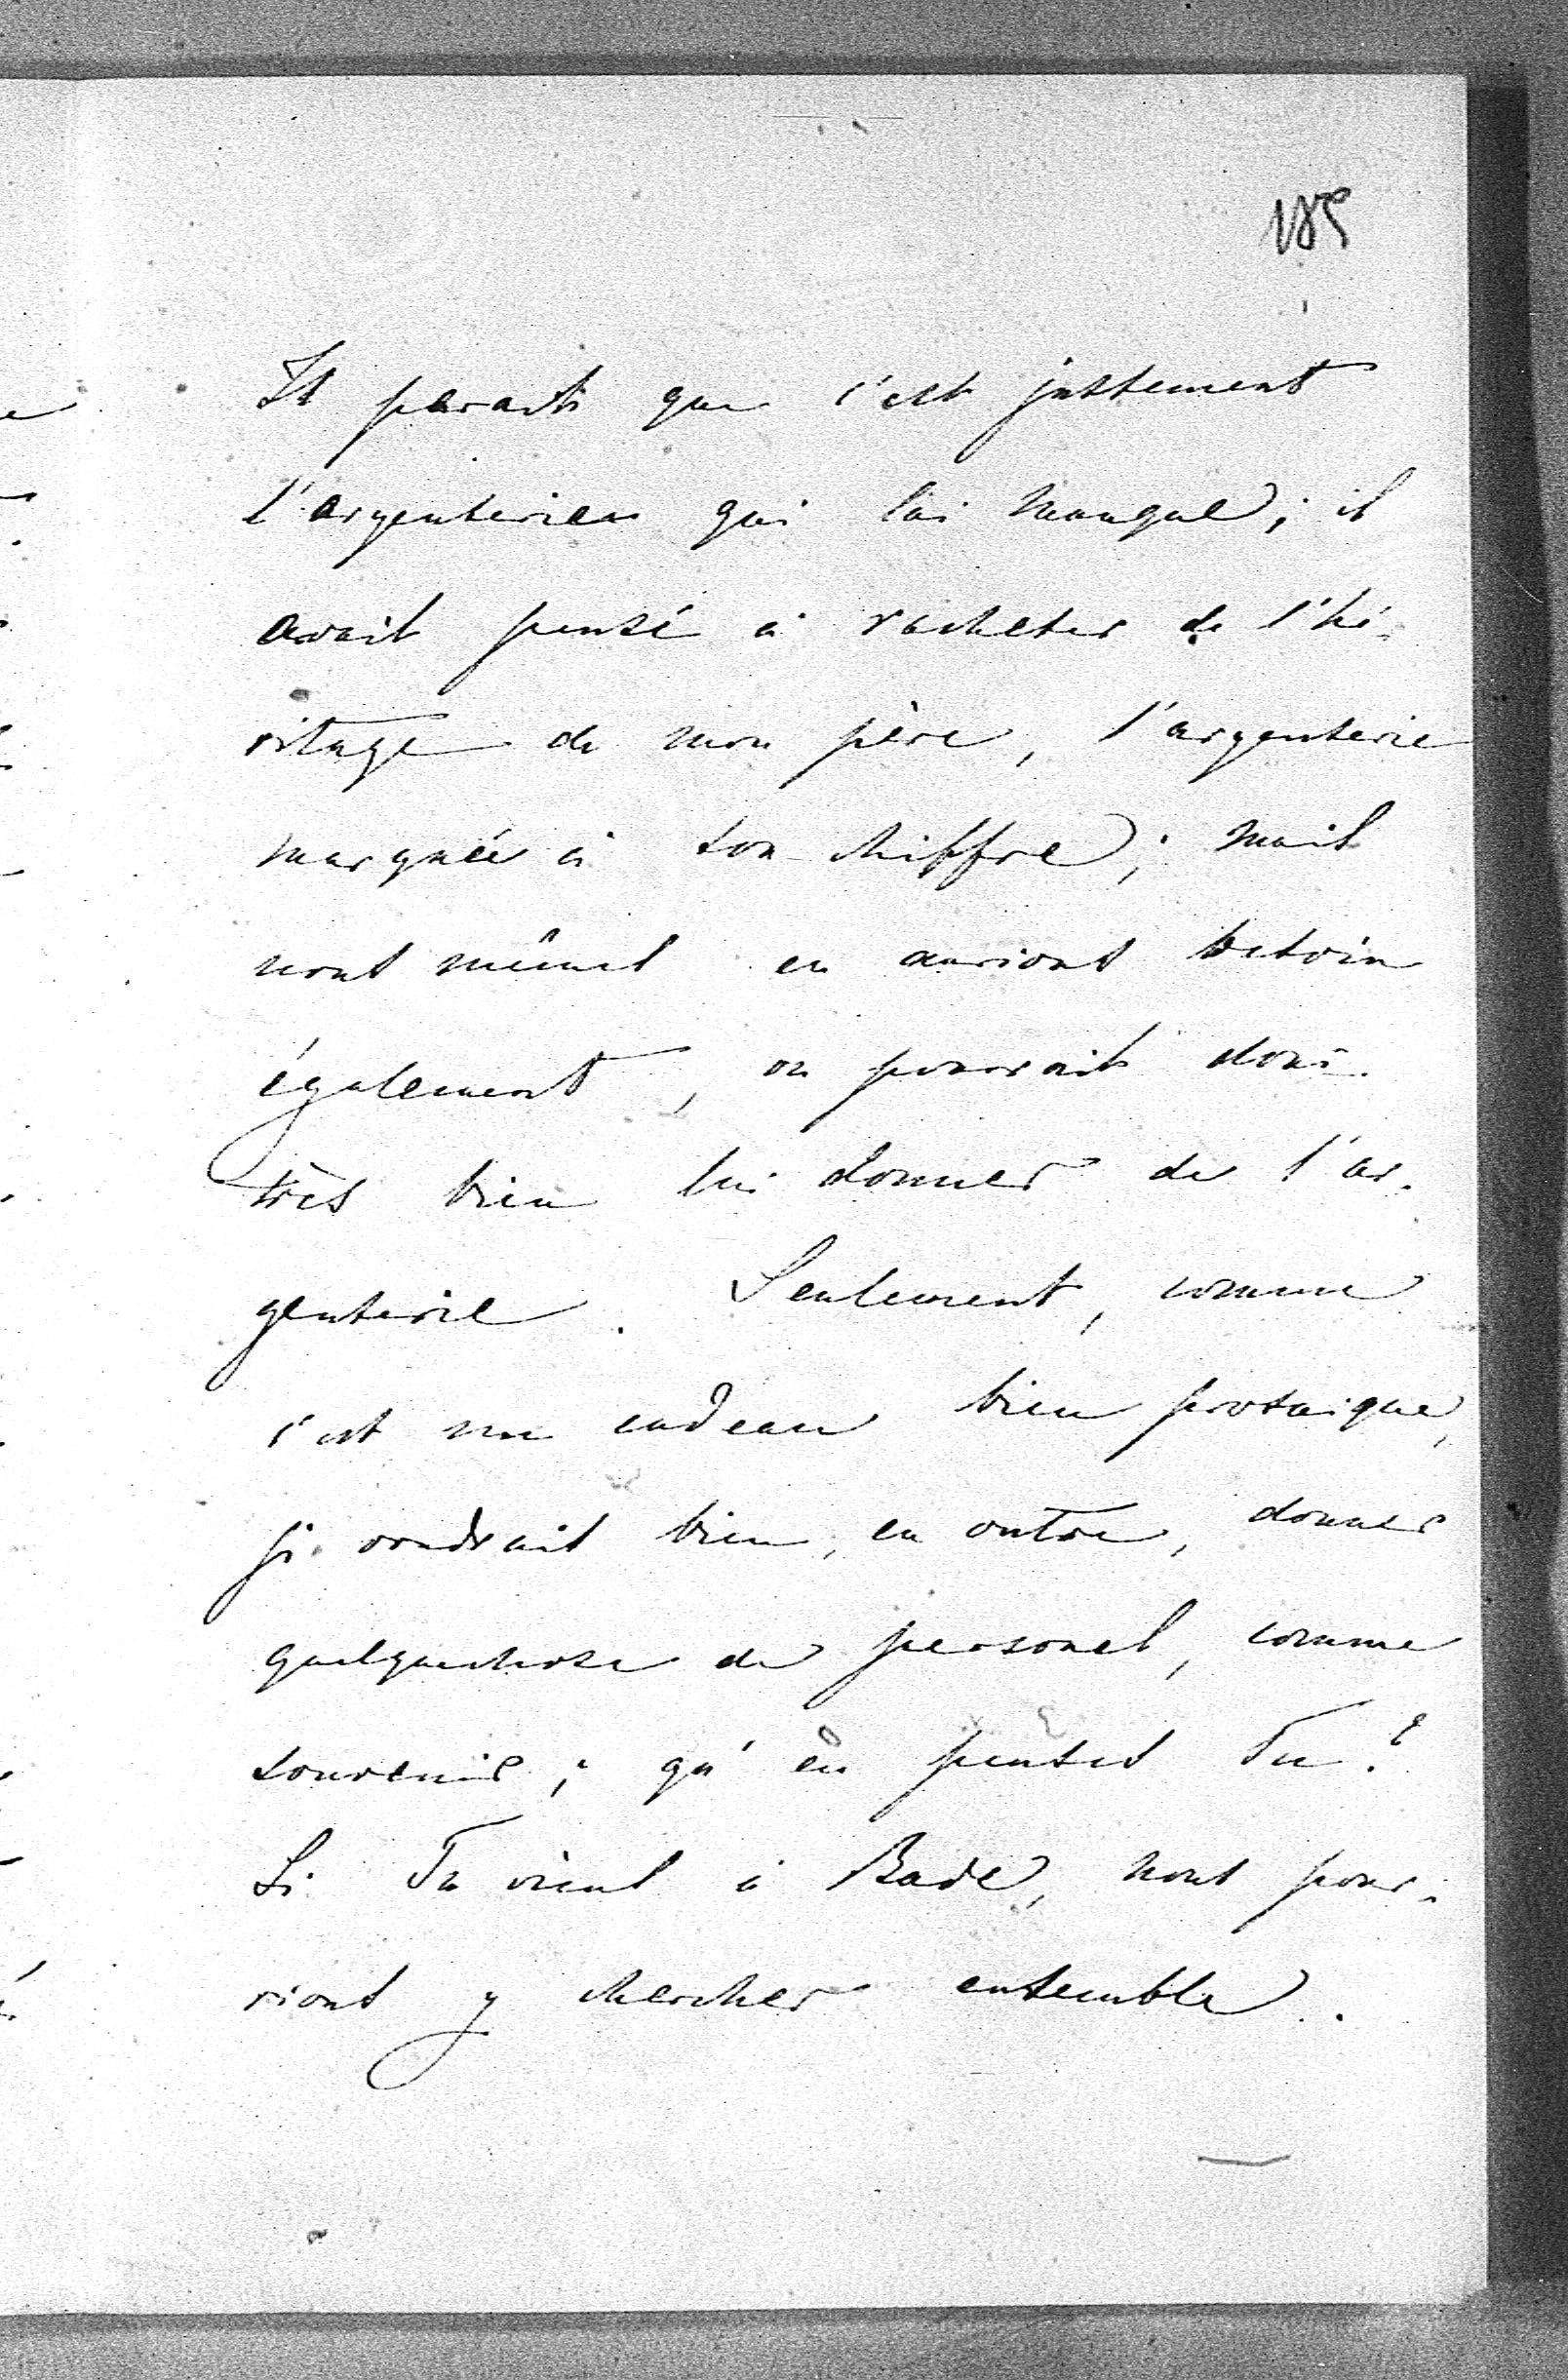 185
Il parait que c'est justement
l'argenterie qui lui manque; il
avait pensé à racheter de l'hé-
ritage de mon père, l'argenterie
marquée à son chiffre; mais
nous mêmes en aurions besoin
également, on pourrait donc
très bien lui donner de l'ar-
genterie. Seulement, comme
c'est un cadeau bien prosaique,
je voudrais bien, en outre, donner
quelquechose de personel, comme
souvenir; qu'en penses Tu?
Si Tu viens à Bade, nous pour-
rions y chercher ensemble.